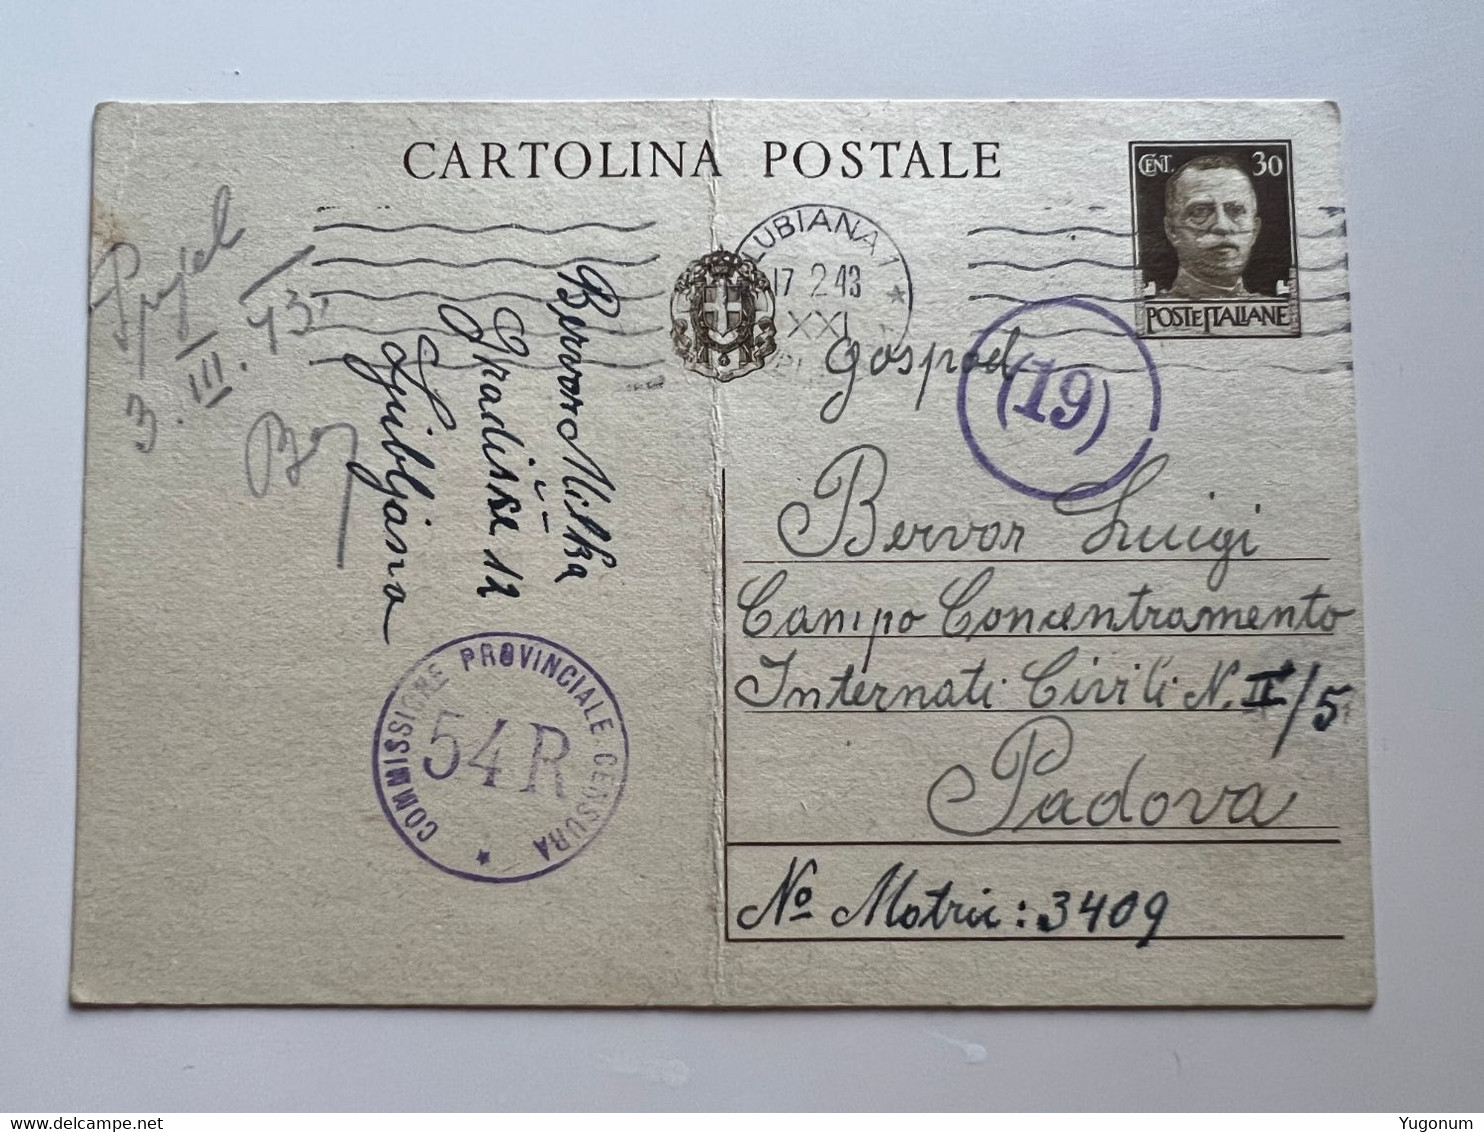 CARTOLINA POSTALE
CENT. 30
POSTE ITALIANE
LUBIANA 1
17 2 43
XXI
Prejel
3. III. 43.
Bervar Milka
Gradišče 12
Ljubljana
Gospod
(19)
Bervar Luigi
Campo Concentramento
Internati Civili N. II/5
Padova
No Matric: 3409
COMMISSIONE PROVINCIALE CENSURA
54 R
Yugonum